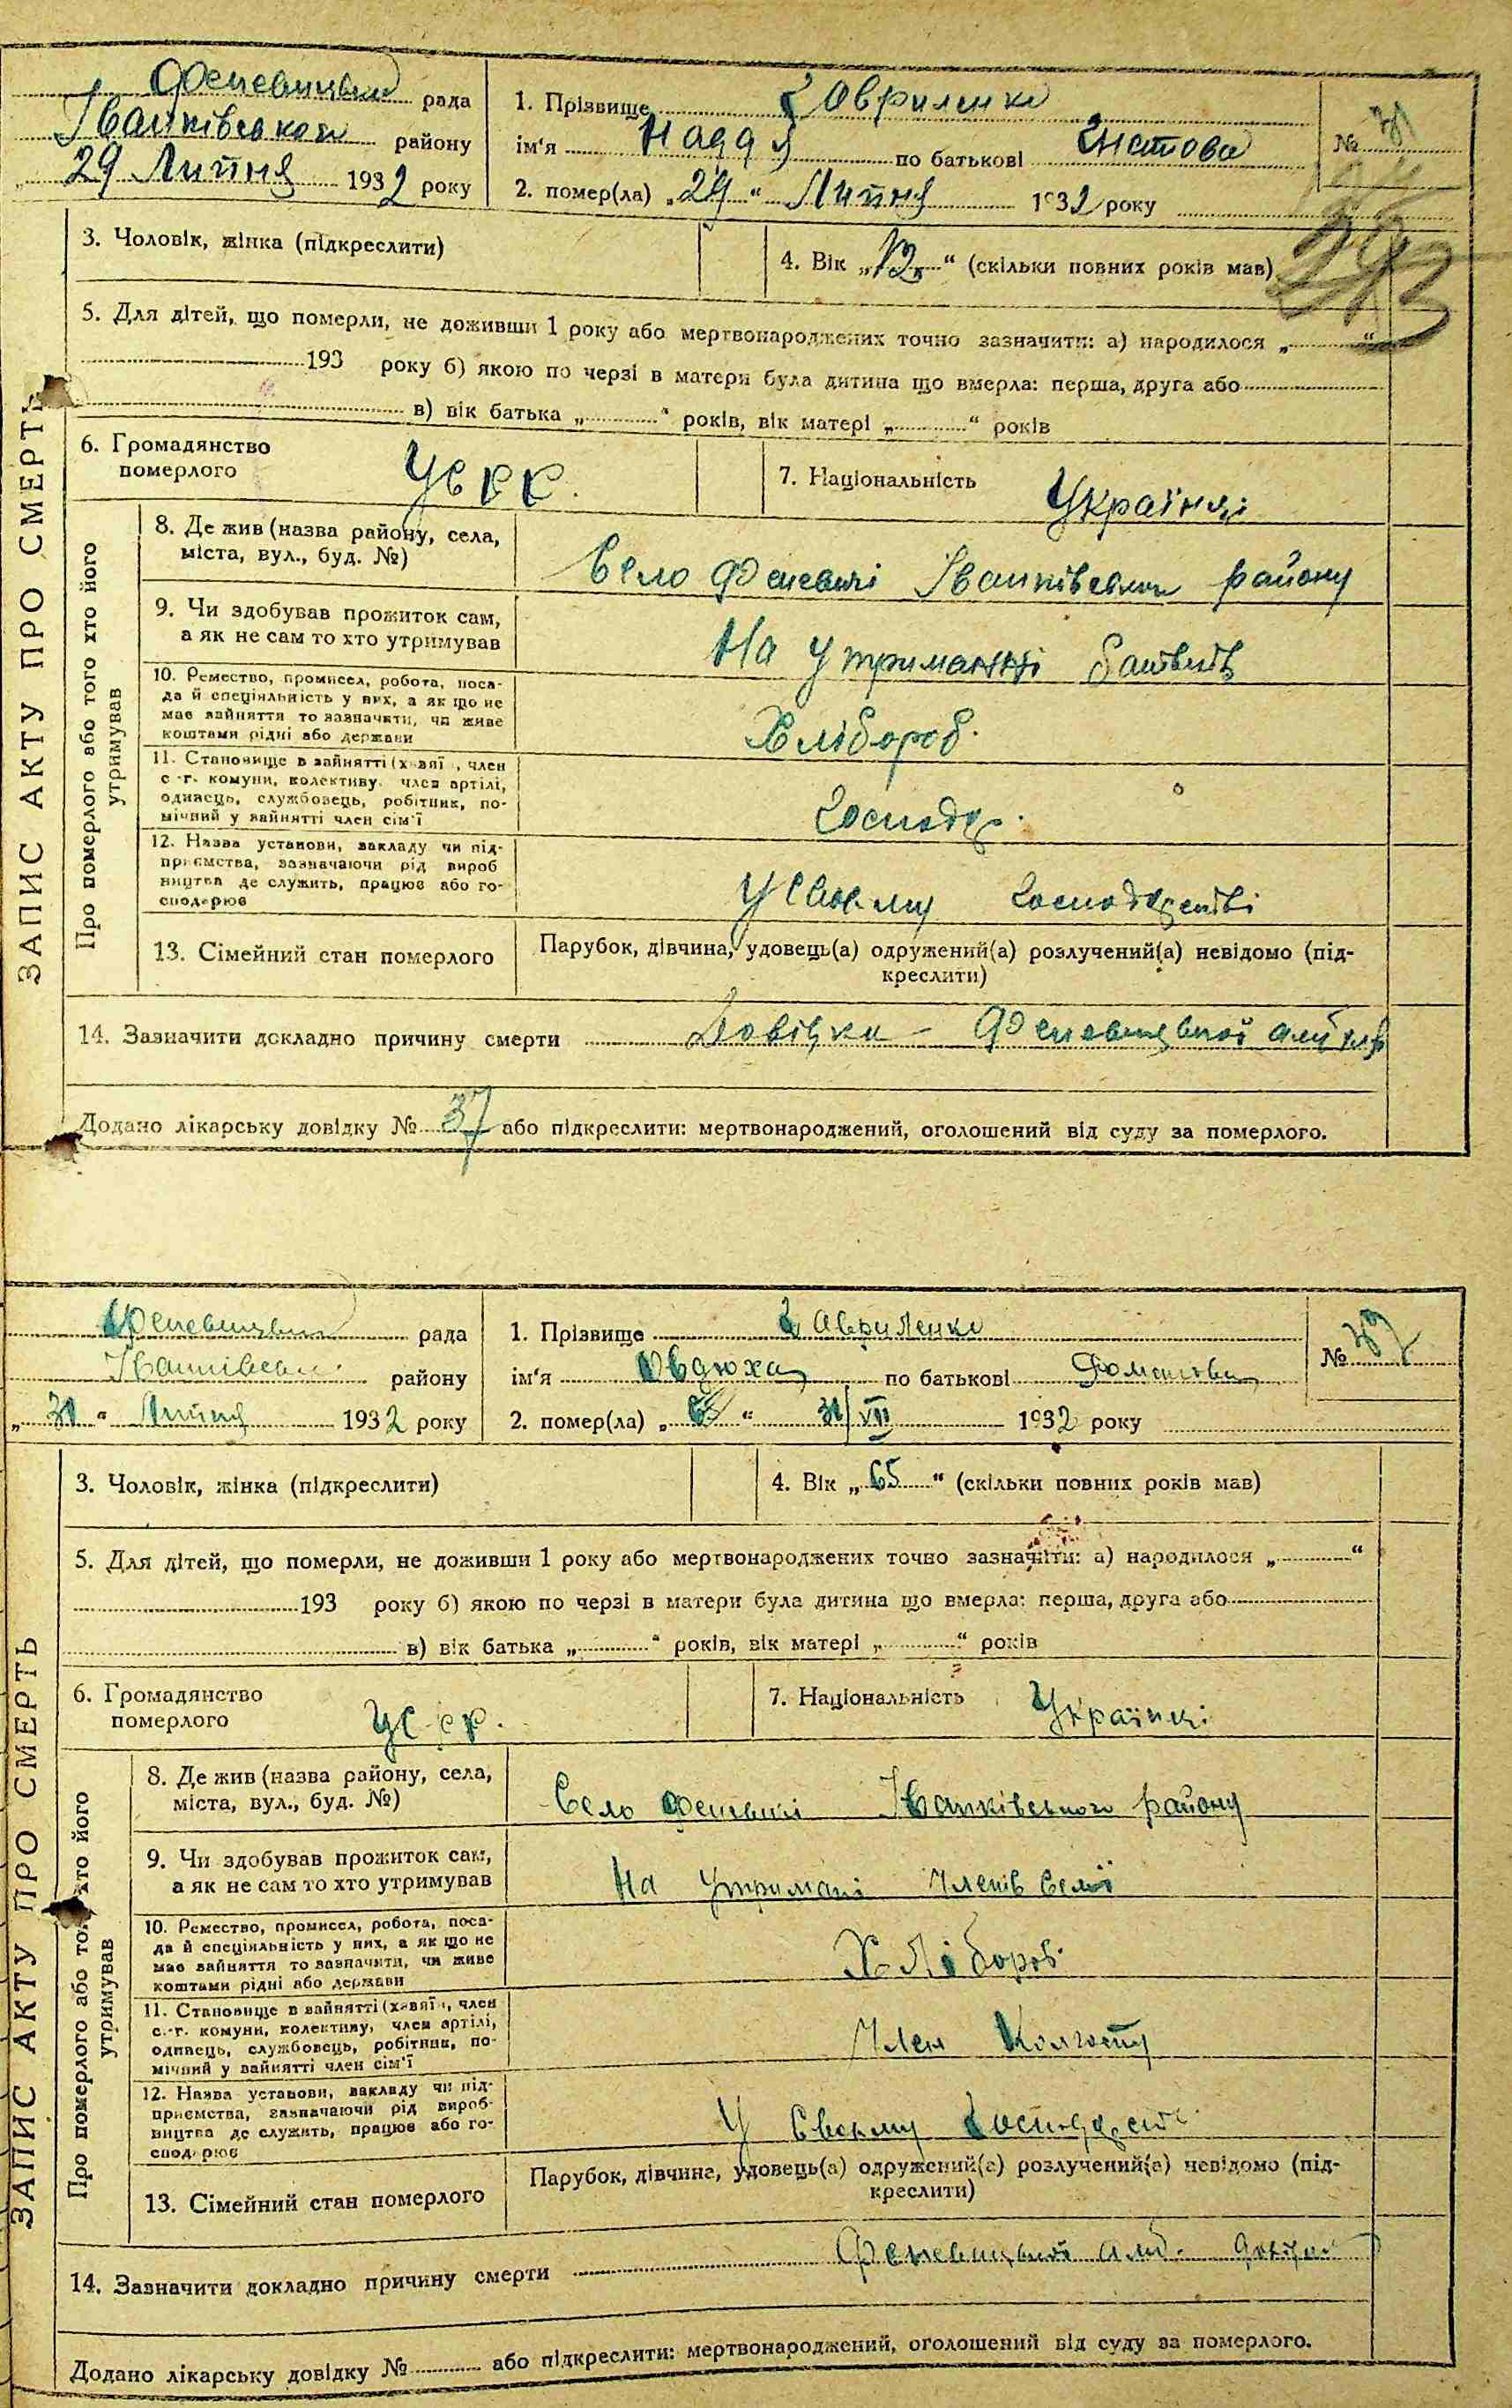 Феневицька рада
Іванківського району
29 Липня 1932 року
1. Прізвище Гавриленко
ім'я Надя по батькові Гнатова
2. помер(ла) „29“ Липня 1932 року
№ 31
3. Чоловік, жінка (підкреслити)
4. Вік „12“ (скільки повних років мав)
5. Для дітей, що померли, не доживши 1 року або мертвонароджених точно зазначити: а) народилося „ “
193 року б) якою по черзі в матери була дитина що вмерла: перша, друга або
в) вік батька „ “ років, вік матері „ “ років
6. Громадянство
померлого
УСРР.
7. Національність
Українці
ЗАПИС АКТУ ПРО СМЕРТЬ
Про померлого або того хто його
утримував
8. Де жив (назва району, села,
міста, вул., буд. №)
Село Феневичі Іванківського району
9. Чи здобував прожиток сам,
а як не сам то хто утримував
На утриманні батьків
10. Ремество, промисел, робота, поса-
да й спеціяльність у них, а як що не
має зайняття то зазначити, чи живе
коштами рідні або держави
Хлібороб.
11. Становище в зайнятті (х звяї , член
с -г. комуни, колективу, член артілі,
одинець, службовець, робітник, по-
мічний у зайнятті член сім'ї
Господар.
12. Назва установи, закладу чи під-
приємства, зазначаючи рід вироб
ництва де служить, працює або го-
сподарює
У своєму господарстві
13. Сімейний стан померлого
Парубок, дівчина, удовець(а) одружений(а) розлучений(а) невідомо (під-
креслити)
14. Зазначити докладно причину смерти Довідка – Феневицької
Додано лікарську довідку № 37 або підкреслити: мертвонароджений, оголошений від суду за померлого.
Феневицька рада
Іванківськ. району
„31“ Липня 1932 року
1. Прізвище Гавриленко
ім'я Явдоха по батькові
2. помер(ла) „ “ 31/VII 1932 року
№
3. Чоловік, жінка (підкреслити)
4. Вік „65“ (скільки повних років мав)
5. Для дітей, що померли, не доживши 1 року або мертвонароджених точно зазначити: а) народилося „ “
193 року б) якою по черзі в матери була дитина що вмерла: перша, друга або
в) вік батька „ “ років, вік матері „ “ років
6. Громадянство
померлого
УСРР.
7. Національність
Українці
ЗАПИС АКТУ ПРО СМЕРТЬ
Про померлого або то хто його
утримував
8. Де жив (назва району, села,
міста, вул., буд. №)
Село Феневичі Іванківського району
9. Чи здобував прожиток сам,
а як не сам то хто утримував
На утримані Членів Семї
10. Ремество, промисел, робота, поса-
да й спеціяльність у них, а як що не
має зайняття то зазначити, чи живе
коштами рідні або держави
Хлібороб.
11. Становище в зайнятті (х звяї , член
с.-г. комуни, колективу, член артілі,
одинець, службовець, робітник, по-
мічний у зайнятті член сім'ї
Член Колгоспу
12. Назва установи, закладу чи під-
приємства, зазначаючи рід вироб-
ництва де служить, працює або го-
сподарює
У Своєму Господарст
13. Сімейний стан померлого
Парубок, дівчина, удовець(а) одружений(а) розлучений(а) невідомо (під-
креслити)
14. Зазначити докладно причину смерти Феневицької амб.
Додано лікарську довідку № або підкреслити: мертвонароджений, оголошений від суду за померлого.